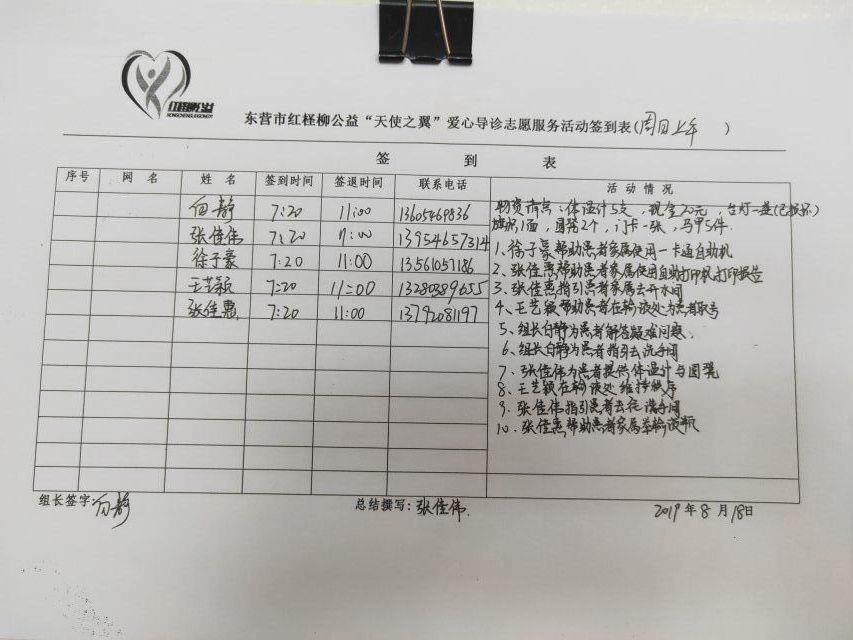 红柽柳公益
东营市红柽柳公益“天使之翼”爱心导诊志愿服务活动签到表(周日上午)
签 到 表
序号 网 名 姓 名 签到时间 签退时间 联系电话 活 动 情 况
白静 7:20 11:00 13605469836
张佳伟 7:20 11:00 13954657314
徐子豪 7:20 11:00 13561057186
王艺颖 7:20 11:00 13280389655
张佳惠 7:20 11:00 13792081197
物资清点:体温计5支,现金20元,台灯一盏(已损坏)
旗帜1面,圆凳2个,门卡一张,马甲5件.
1、徐子豪帮助患者家属使用一卡通自动机
2、张佳惠帮助患者家属使用自助打印机打印报告
3、张佳惠指引患者家属去开水间
4、王艺颖帮助患者在输液处为患者取号
5、组长白静为患者解答疑难问题.
6、组长白静为患者指引去洗手间
7、张佳伟为患者提供体温计与圆凳
8、王艺颖在输液处维持秩序
9、张佳伟指引患者去往洗手间
10、张佳惠帮助患者家属举输液瓶
组长签字:白静 总结撰写:张佳伟. 2019年8月18日